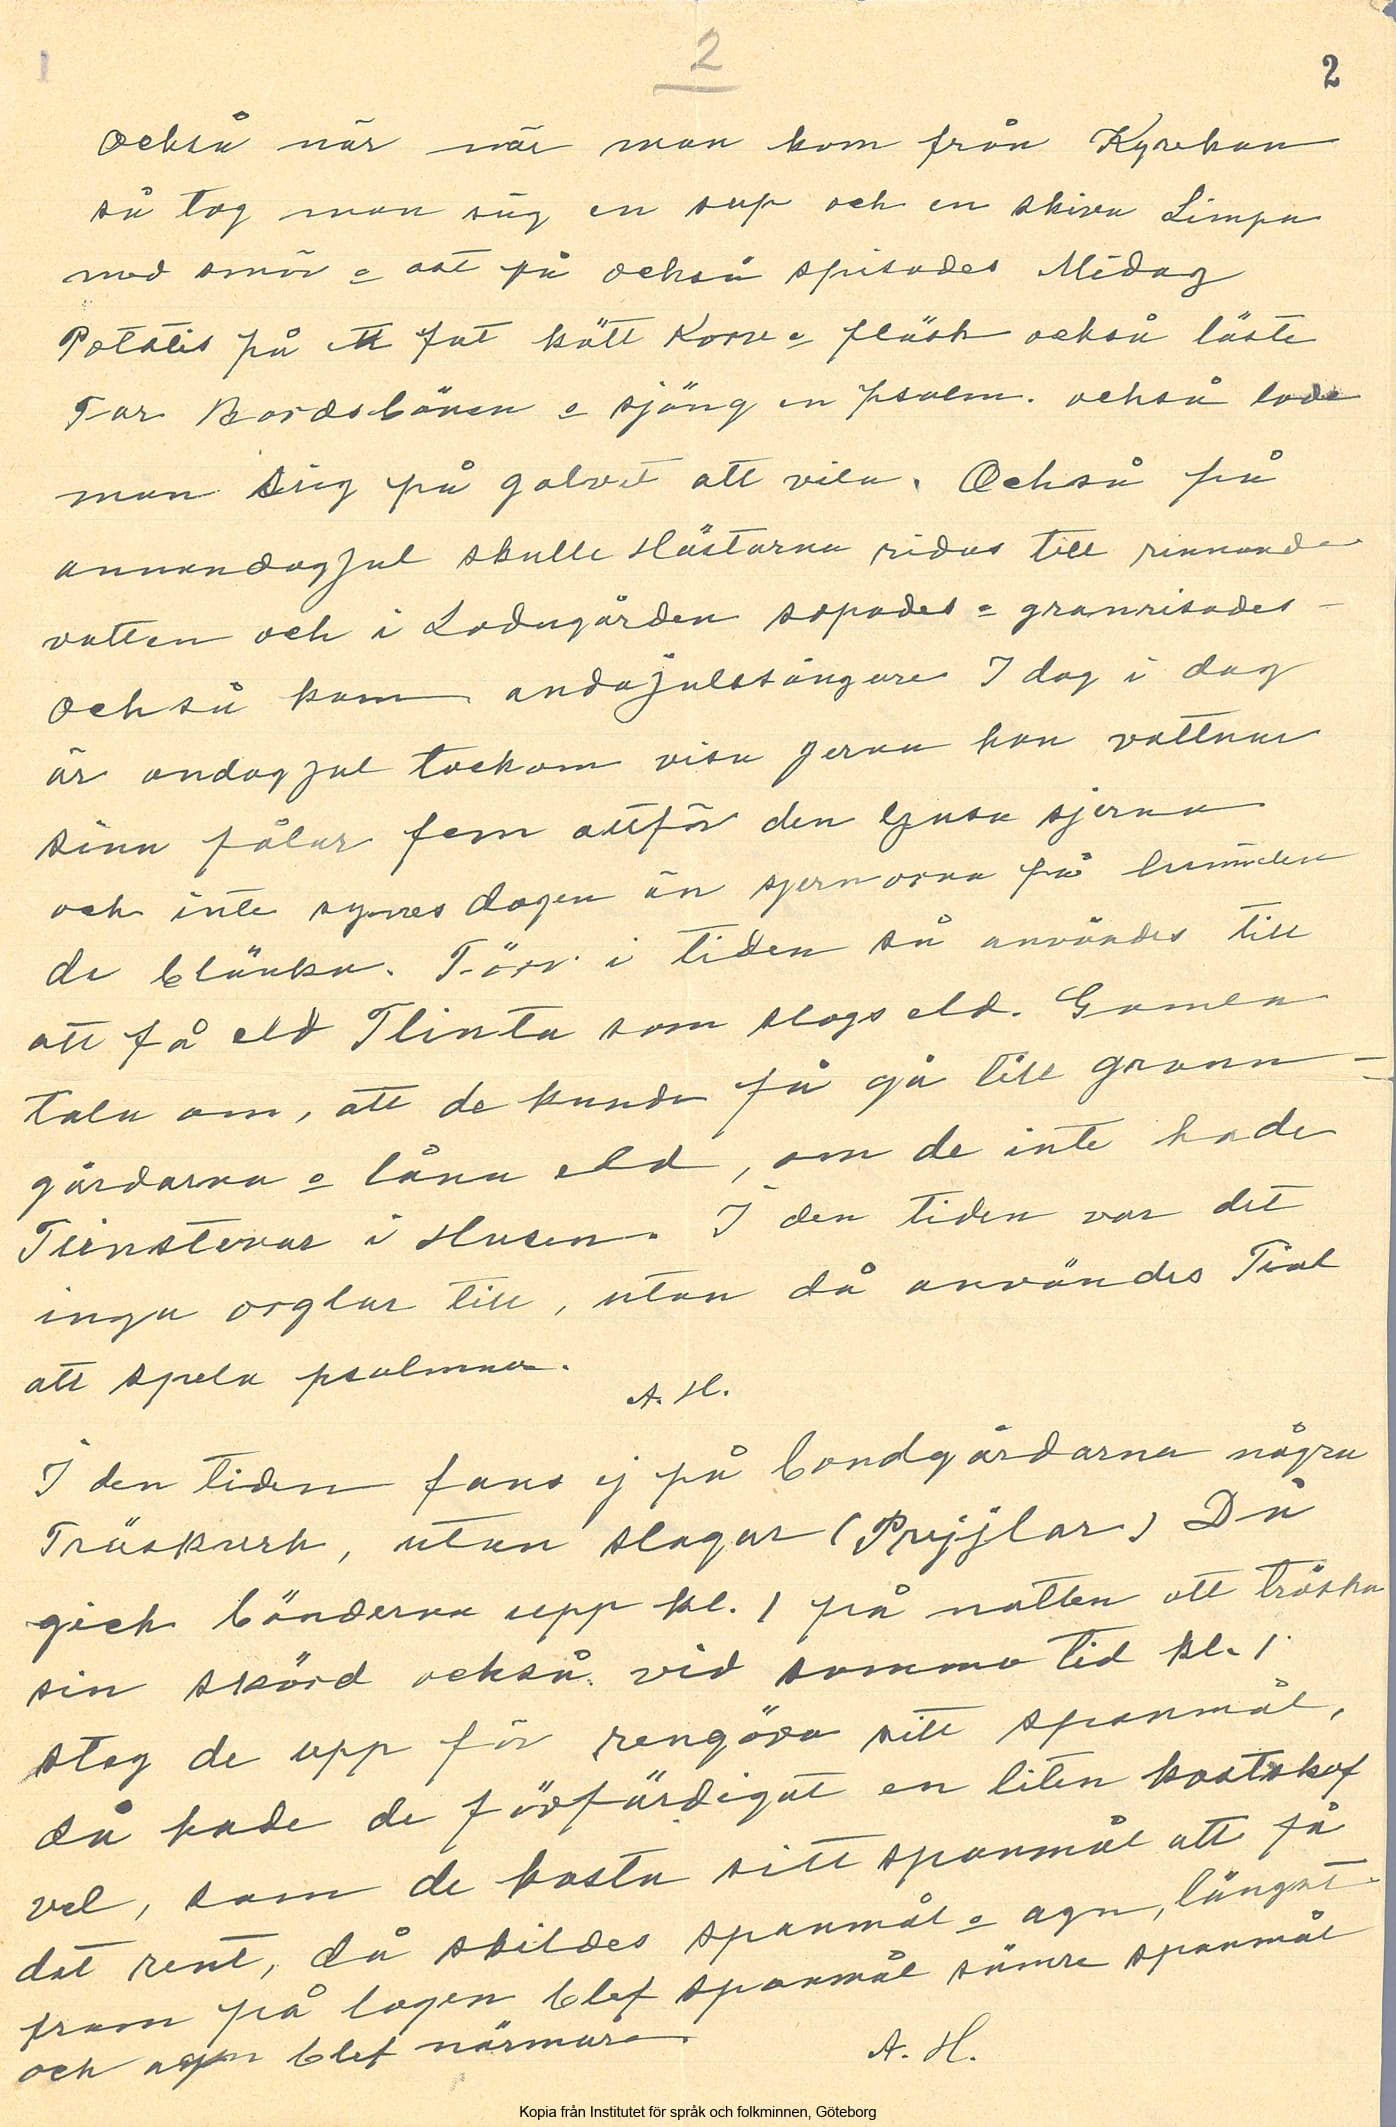 2
2
också när när man kom från Kyrckan
så tog man sig en sup och en skiva Limpa
med smör o ost på också spisades Midag
Potatis på ett fat kött Korv o fläsk också läste
Far Bordsbönen o sjöng en psalm. också lade
man sig på golvet att vila. Också på
annandagjul skulle Hästarna ridas till rinnande
vatten och i Ladugården sopades o granrisades
också kom andajulssångare I dag i dag
är andagjul tockom visa gerna han vattnar
sina fålar fem alltför den ljusa sjerna
och inte synes dagen än sjernorna på himmelen
de blänka. Förr i tiden så användes till
att få eld Flinta som slogs eld. Gamla
tala om, att de kunde få gå till grann-
gårdarna o låna eld, om de inte hade
i Husen. I den tiden var det
inga orglar till, utan då användes Fiol
att spela psalmna.
A. H.
I den tiden fans ej på bondgårdarna några
Tröskverk, utan slagar (Prejjlar) Då
gick bönderna upp kl. 1 på natten att tröska
sin skörd också. vid samma tid kl. 1
steg de upp för rengöra sitt spanmål,
då hade de förfärdigat en liten kastskof
vel, som de kasta sitt spanmål att få
dat rent, då skildes spanmål o agn, längst
fram på logen blef spanmål sämre spanmål
och agn blef närmare
A. H.
Kopia från Institutet för språk och folkminnen, Göteborg